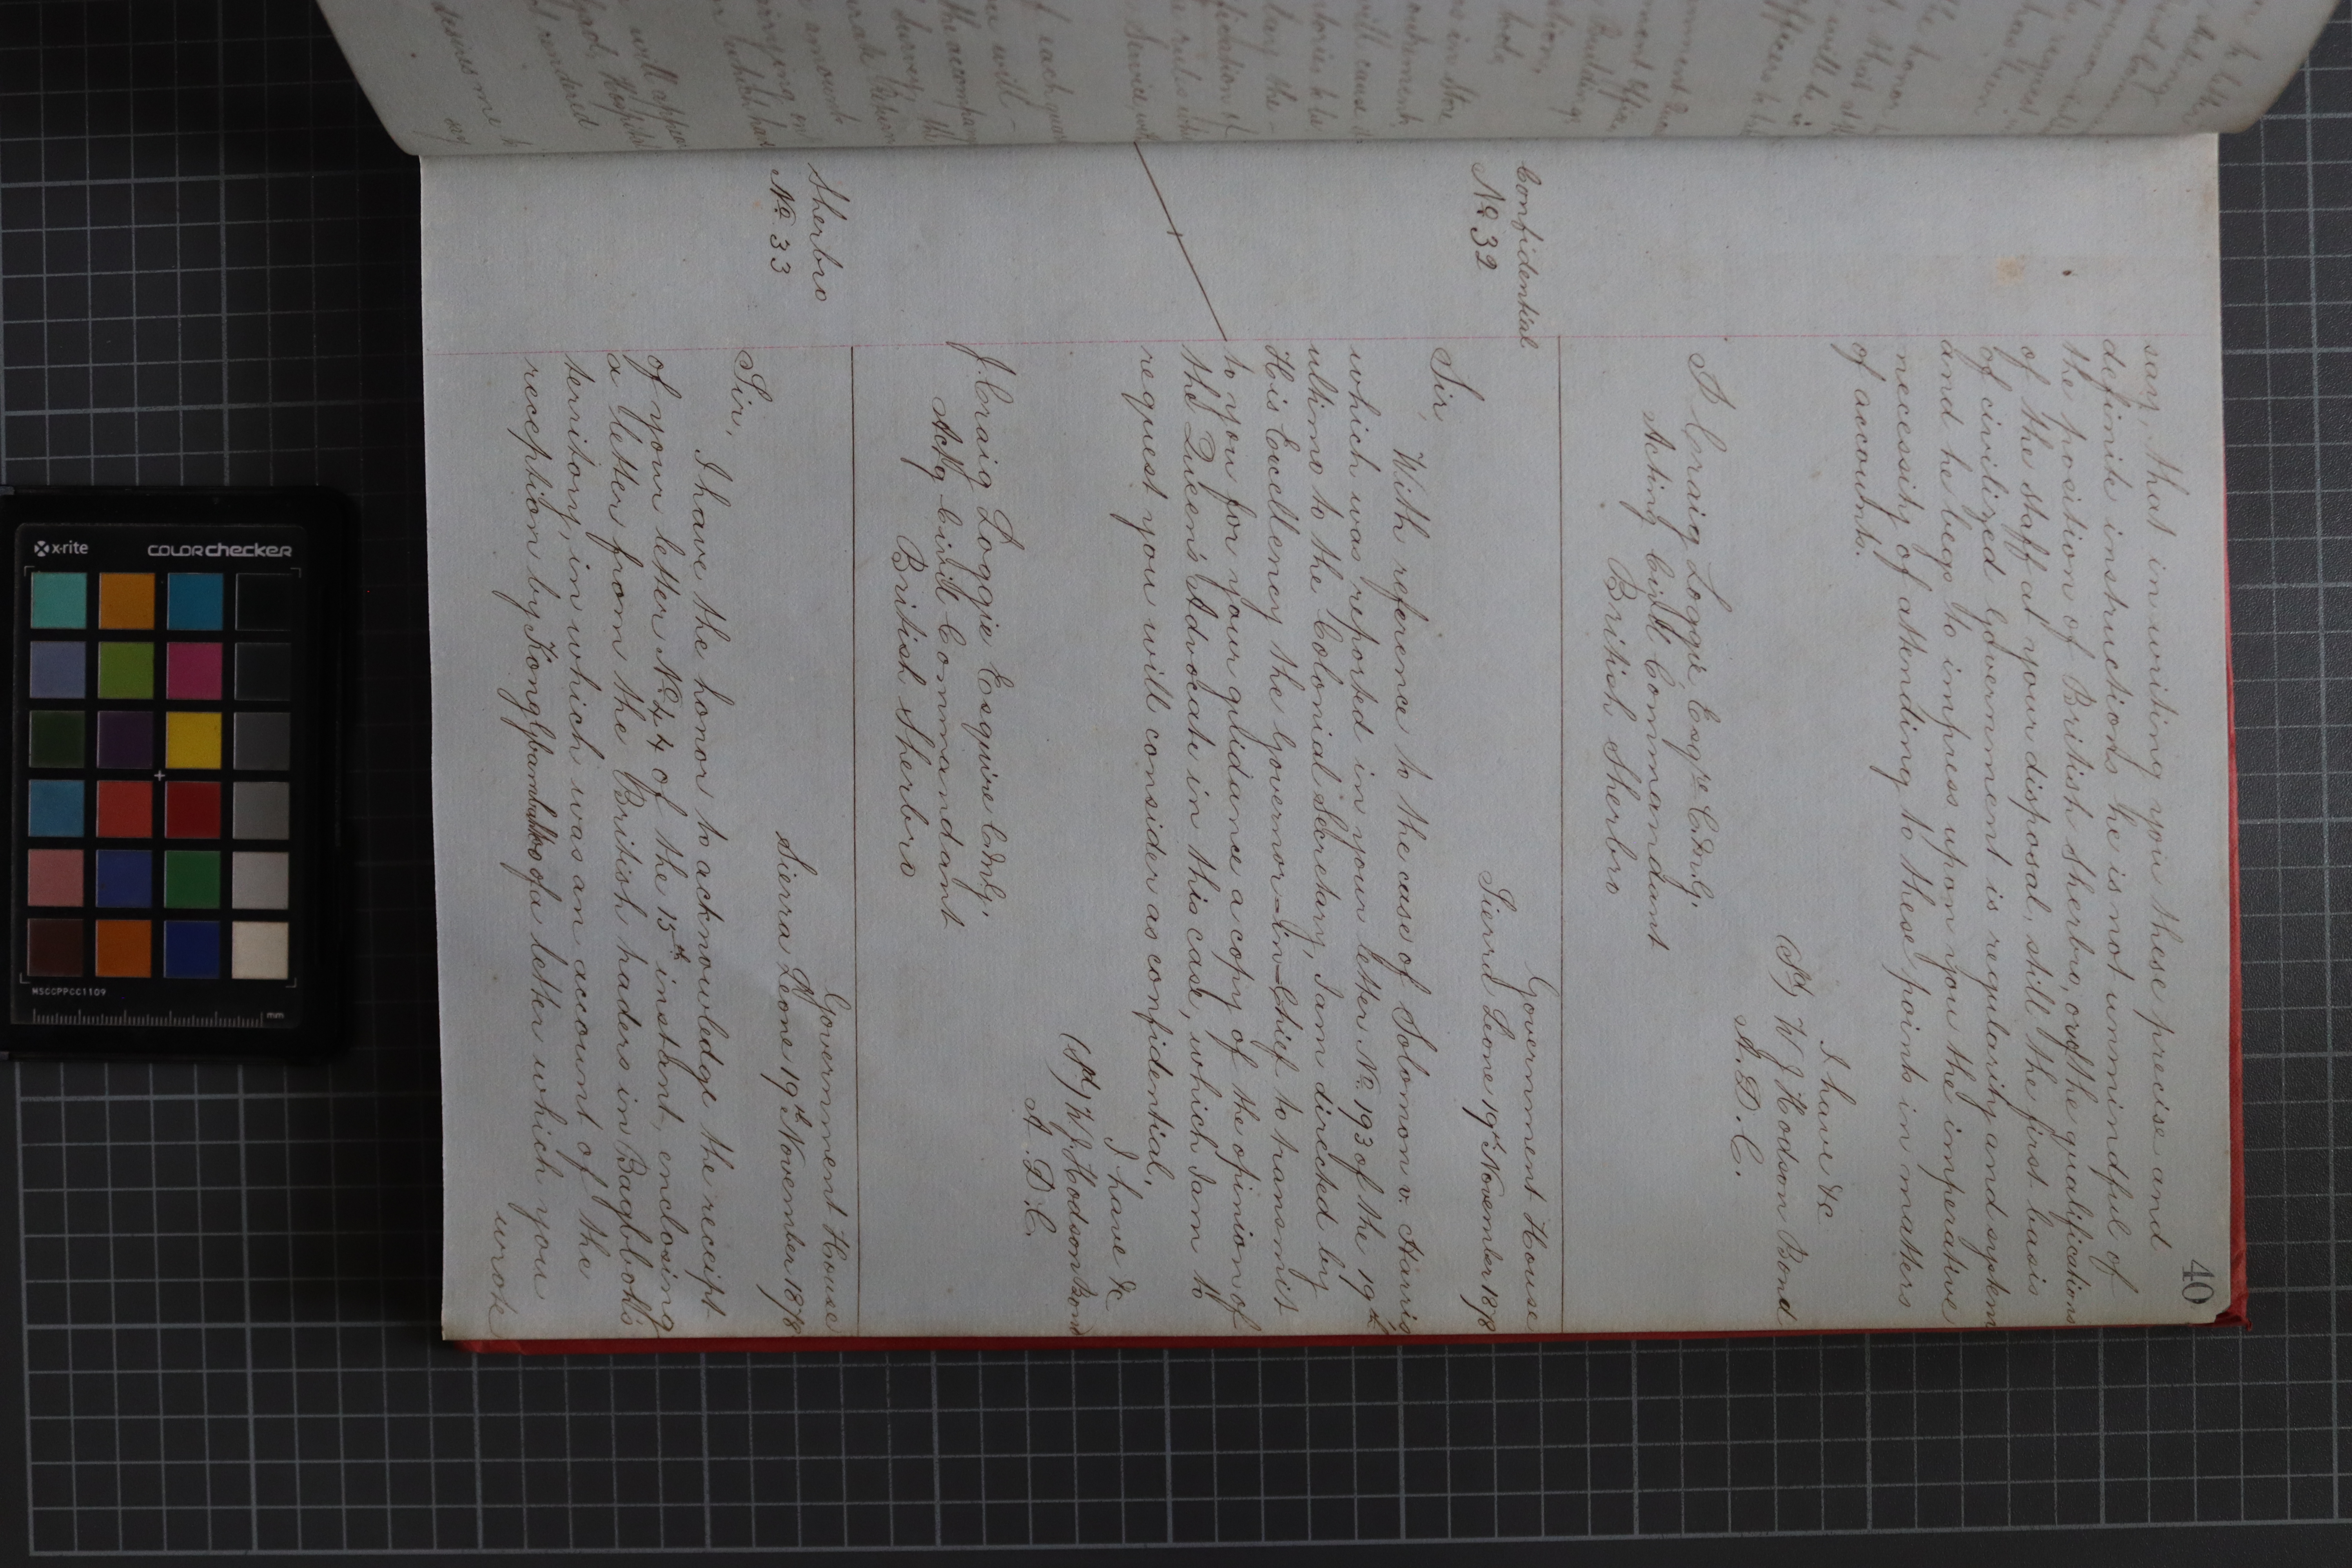 40
say, that in writing you these precise and
definite instructions he is not unmindful of
the position of British Sherbro, and the qualifications
of the staff at your disposal, still the first basis
of civilized Government is regularity and system
and he begs to impress upon you the imperative
necessity of attending to these points in matters
of accounts.
I have &c
(Sd) W J Hodson Bond
A. D. C.
J Craig Loggie, Esqre C.M.G.
Acting Civil Commandant
British Sherbro
Confidential
No 32
Government House
Sierra Leone 19th November 1878
Sir,
With reference to the case of Solomon v. Harris
which was reported in your letter No 193 of the 19th
ultimo to the Colonial Secretary, I am directed by
His Excellency the Governor-in-Chief to transmit
to you for your guidance a copy of the opinion of
the Queen's Advocate in this case, which I am to
request you will consider as confidential.
I have &c
(Sd) W J Hodson Bond
A. D. C.
J. Craig Loggie Esquire C.M.G.
Actg Civil Commandant
British Sherbro
Sherbro
No 33
Government House
Sierra Leone 19th November 1878
Sir,
I have the honor to acknowledge the receipt
of your letter No 44 of the 15th instant, enclosing
a letter from the British traders in Bagboo's
territory, in which was an account of the
reception by of a letter which you
wrote
x-rite
colorchecker
MSCCPPCC1109
mm